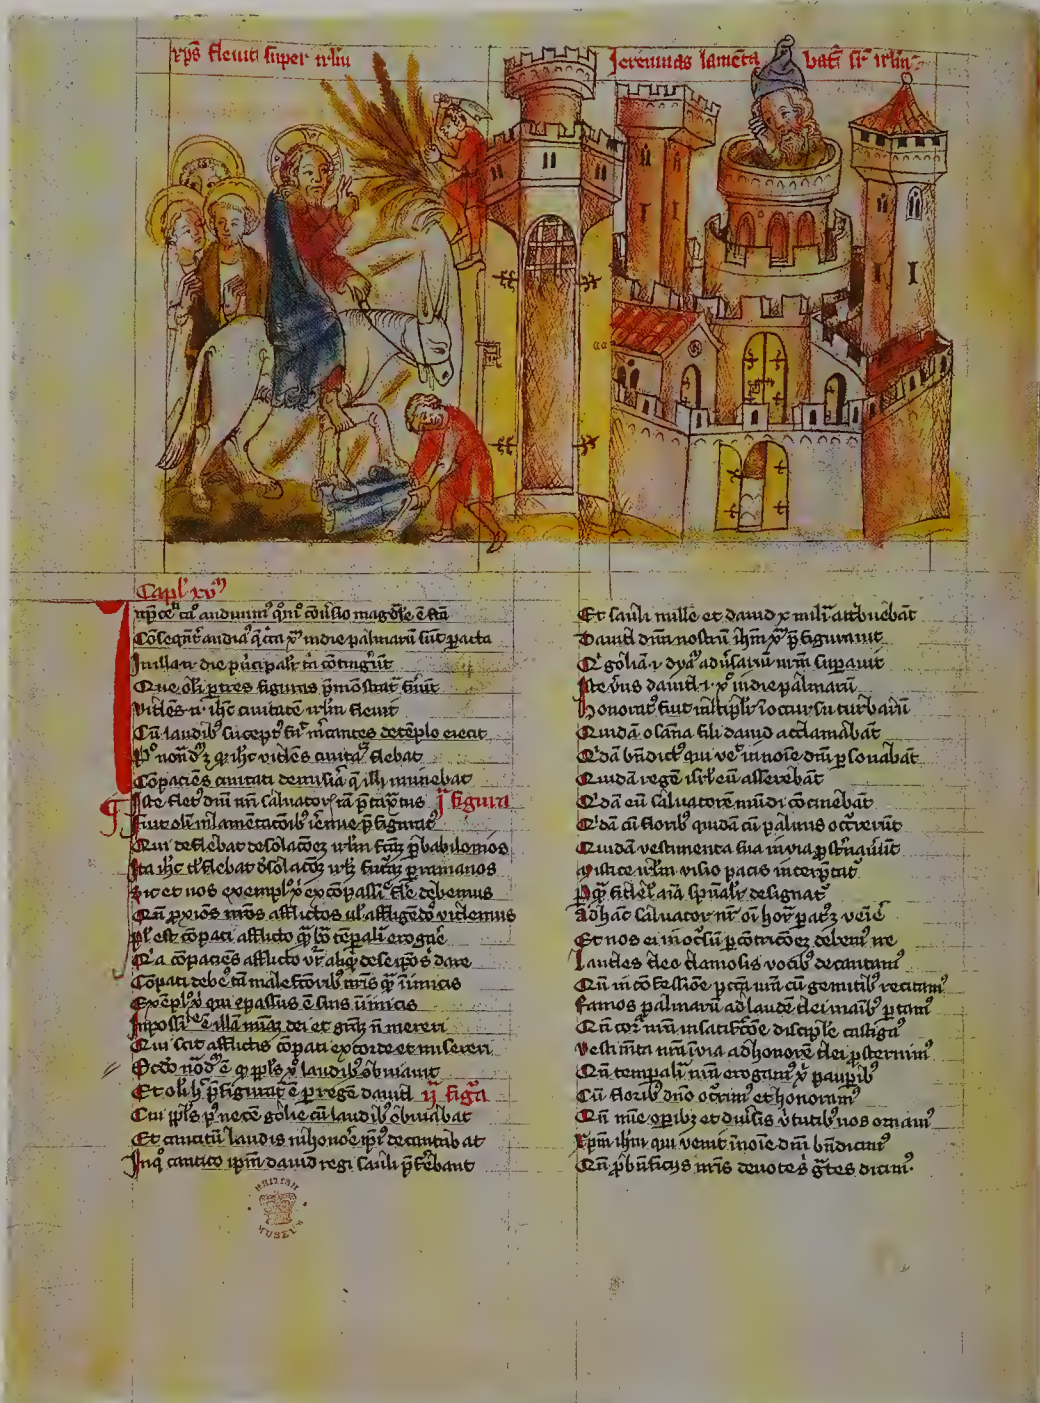 xp̄s fleuit super irlm̄
Jeremias lamēta batr̄ sr̄ irlm̄
Capl'm xvm
In p̄cedēti ca° audiuim' qm̄° cōu'sio magdl'e ē fc̄a
Cōseqn̄t' audiam' q̄ circa xp̄m in die palmarū sūt p̄acta
In illa n. die p̄ncipalr̄ tria cōtingerūt
Que oli p̄ tres figuras p̄mōstrata fuerūt
Vidēs n. ihc̄ ciuitatē irlm̄ fleuit
Cū laudib' suscept' fuit m̄cantes de tēplo eiecit
P° notād' ē q' ihc̄ vidēs ciuitatē flebat
Cōpaciēs ciuitati de mis'ia q̄ illi iminebat
Iste flet' dn̄i nr̄i saluatoris iā p̄taxatus j figura
Fuit oli in lamentacōib' iēmie p̄figurat'
Qui deflebat desolacōez irlm̄ fc̄am p̄ babilonios
Ita ihc̄ flebat desolacōz irlm̄ futurā p̄ romanos
Sic et nos exemplo xp̄i ex cōpassiōe flē debemus
Qn̄ p̄xios nr̄os afflictos ul' affligēdos videmus
Pl' est cōpati afflicto q̄ bō tēpalia erogare
Q'a cōpaciēs afflicto vr̄ aliqd de seip̄o dare
Cōpati debem' etiā malefc̄orib' nr̄is et inimicis
Exēplo xp̄i qui cōpassus ē suis inimicis
Impossibile ē illū mīaz dei et grāz n̄ mereri
Qui scit afflictis cōpati ex corde et misereri
Scd'o notād' ē q' ppl's xp̄o laudib' obuiauit
Et oli h' p̄figurat' ē p̄ regē dauid ij figura
Cui ppl's p' necē golie cū laudib' obuiabat
Et canticū laudis in honorē ip̄i' decantabat
In quo cantico ip̄m dauid regi sauli p̄ferebant
BRITISH MUSEUM
Et sauli mille et dauid x milia attribuebāt
Dauid dn̄m nostrū ihm̄ xp̄m p̄figurauit
Q' goliam .i. dyabolū adu'sariū nr̄m superauit
Iste verus dauid .i. xp̄c in die palmarū
Honorat' fuit multiplr̄ ī occursu turbarū
Quidā osāna fili dauid acclamabāt
Q'dā bn̄dict' qui ven' in noīe dn̄i p̄sonabāt
Quidā regē isrl' eū asserebāt
Q'dā eū saluatorē mūdi cōcinebāt
Q'dā cū florib' quidā cū palmis occurrerūt
Quidā vestimenta sua in via p̄strauerūt
Mistice irlm̄ visio pacis interp̄tat'
P quā fidel' aīa spūalr̄ designat'
Ad hāc saluator nr̄ oī hora parat' ē venire
Et nos ei in occursū p̄ cōtricōez debem' ire
Laudes deo clamosis vocib' decantam'
Qn̄ in cōfessiōe peccata nr̄a cū gemitib' recitam'
Ramos palmarū ad laudē dei in manib' portam'
Qn̄ corp' nr̄m in satisfc̄oe discipline castigam'
Vestimēta nr̄a in via ad honorē dei p̄sternim'
Qn̄ temporalia nr̄a erogam' xp̄i paupib'
Cū florib' dn̄o occurrim' et honoram'
Qn̄ mīe operib' et diu'sis v'tutib' nos ornam'
Xpm̄ ihm̄ qui venit in noīe dn̄i bn̄dicim'
Qn̄ p̄ bn̄ficijs nr̄is deuotes grates dicim'